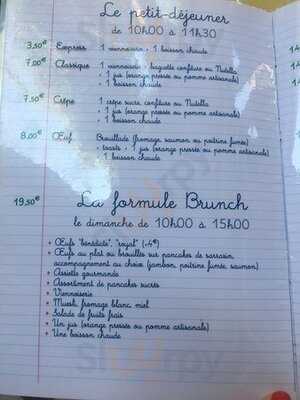 Le petit-déjeuner
de 10h00 à 11h30
3,50€ Express 1 viennoiserie + 1 boisson chaude
7,00€ Classique 1 viennoiserie + baguette confiture ou Nutella
+ 1 jus (orange pressée ou pomme artisanale)
+ 1 boisson chaude
7,50€ Crêpe 1 crêpe sucre, confiture ou Nutella
+ 1 jus (orange pressée ou pomme artisanale)
+ 1 boisson chaude
8,00€ Œuf Brouillade (fromage, saumon ou poitrine fumée)
+ toasts + 1 jus (orange pressée ou pomme artisanale)
+ 1 boisson chaude
19,50€ La formule Brunch
le dimanche de 10h00 à 15h00
+ Œufs "bénédicte", "royal" (+4€)
+ Œufs au plat ou brouillés sur pancakes de sarrasin,
accompagnement au choix (jambon, poitrine fumée, saumon)
+ Assiette gourmande
+ Assortiment de pancakes sucrés
+ Viennoiserie
+ Muesli, fromage blanc, miel
+ Salade de fruits frais
+ Un jus (orange pressée ou pomme artisanale)
+ Une boisson chaude